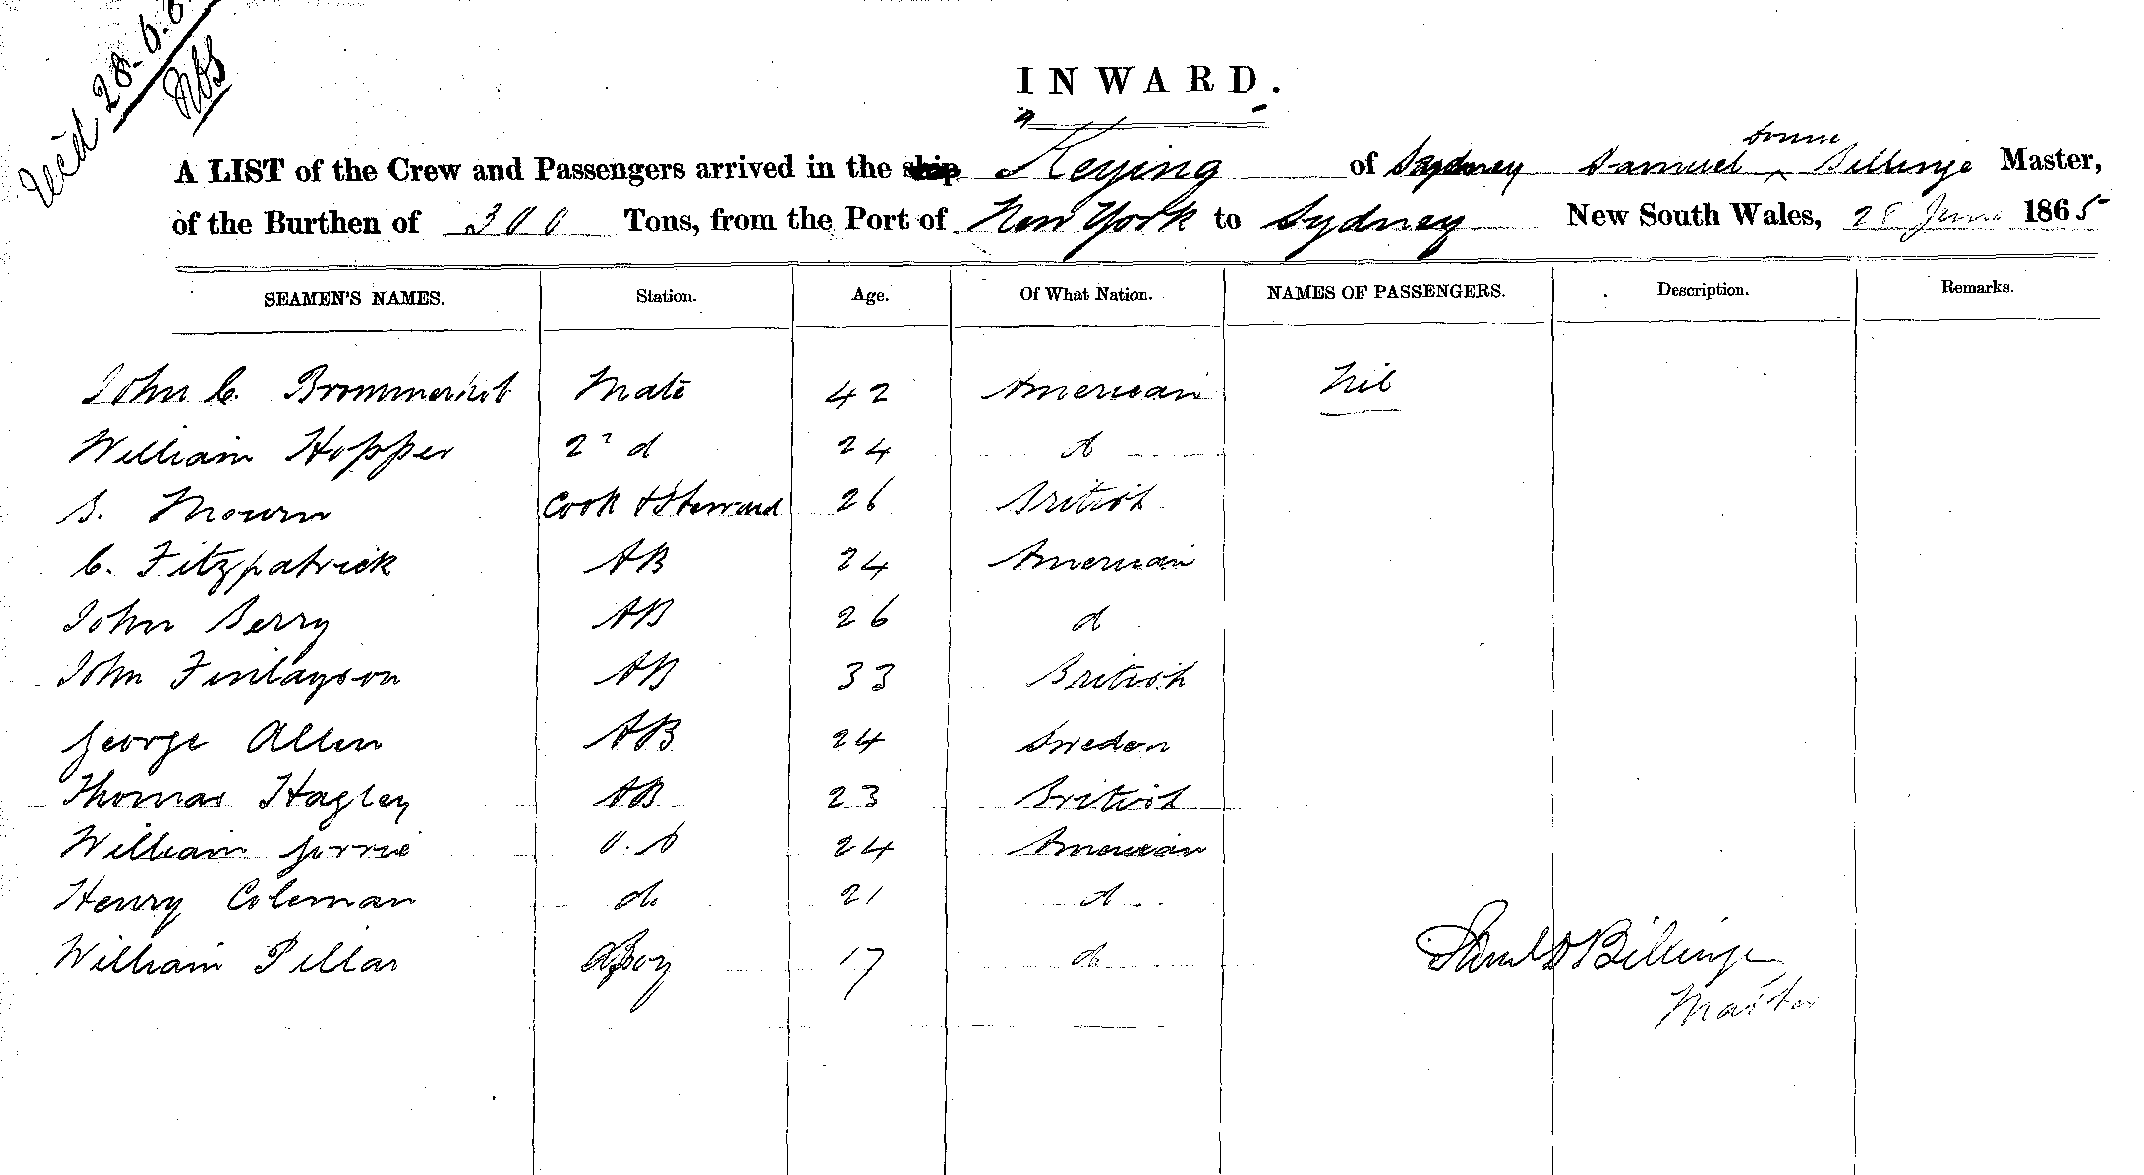 Rec'd 28.6.6
INWARD.
A LIST of the Crew and Passengers arrived in the ship Keying of Sydney Samuel Billinge Master,
of the Burthen of 300 Tons, from the Port of New York to Sydney New South Wales, 28 June 1865
SEAMEN'S NAMES. Station. Age. Of What Nation. NAMES OF PASSENGERS. Description. Remarks.
John C. Mate 42 American Nil
William Hopper 2nd d 24 d
S. Mourn Cook & Steward 26 British
C. Fitzpatrick AB 24 American
John Berry AB 26 d
John Finlayson AB 33 British
George Allen AB 24 Sweden
Thomas Hagley AB 23 British
William Gorrie O.S 24 American
Henry Coleman do 21 d
William Pillar Boy 17 d
Saml D Billinge
Master